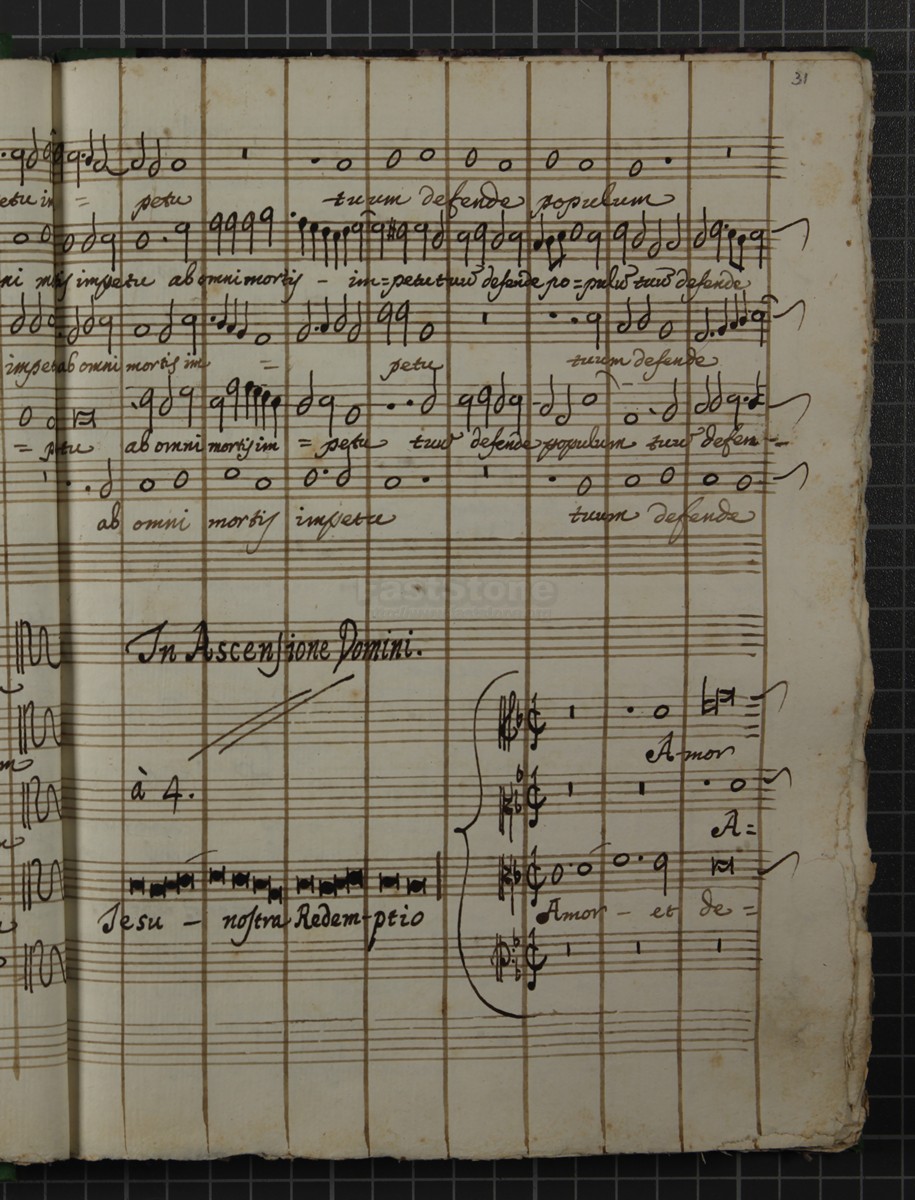 31
petu in = petu tuum defende populum
ni mortis impetu ab omni mortis - im=petu tuū defende po=pulū tuū defende
impetu ab omni mortis im = petu tuum defende
= petu ab omni mortis im = petu tuū defende populum tuū defen-
ab omni mortis impetu tuum defende
FastStone
In Ascensione Domini.
A-mor
à 4.
A=
Iesu - nostra Redem-ptio
Amor - et de=